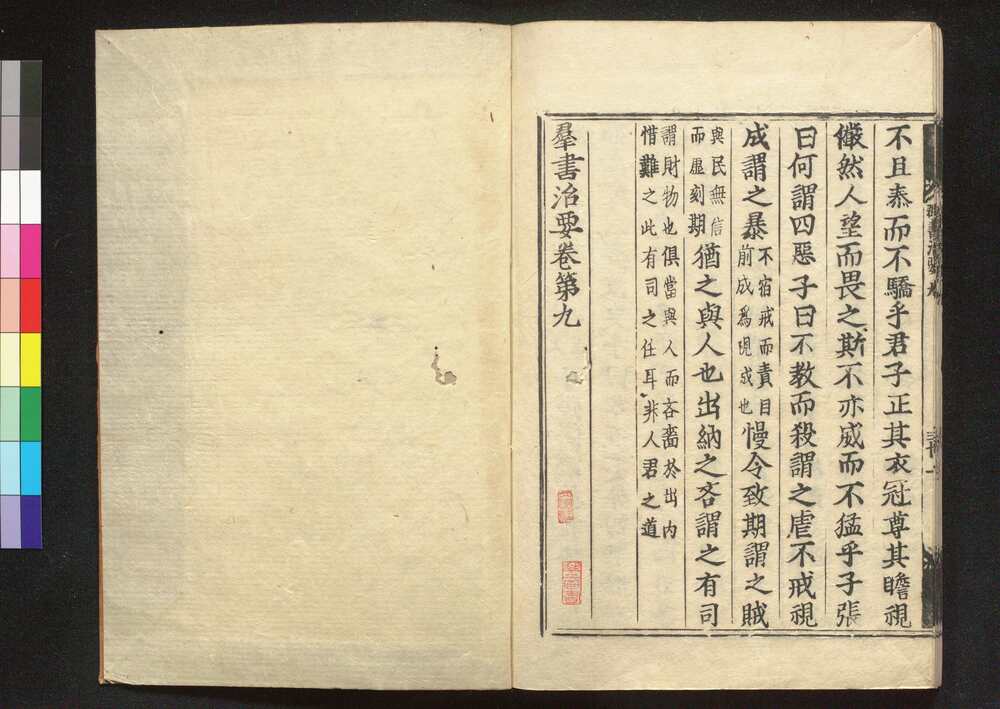 不且泰而不驕乎君子正其衣冠尊其瞻視
儼然人望而畏之斯不亦威而不猛乎子張
曰何謂四惡子曰不教而殺謂之虐不戒視
成謂之暴
不宿戒而責目
前成爲視成也
慢令致期謂之賊
與民無信
而虛刻期
猶之與人也出納之吝謂之有司
謂財物也俱當與人而吝嗇於出内
惜難之此有司之任耳非人君之道
羣書治要卷第九